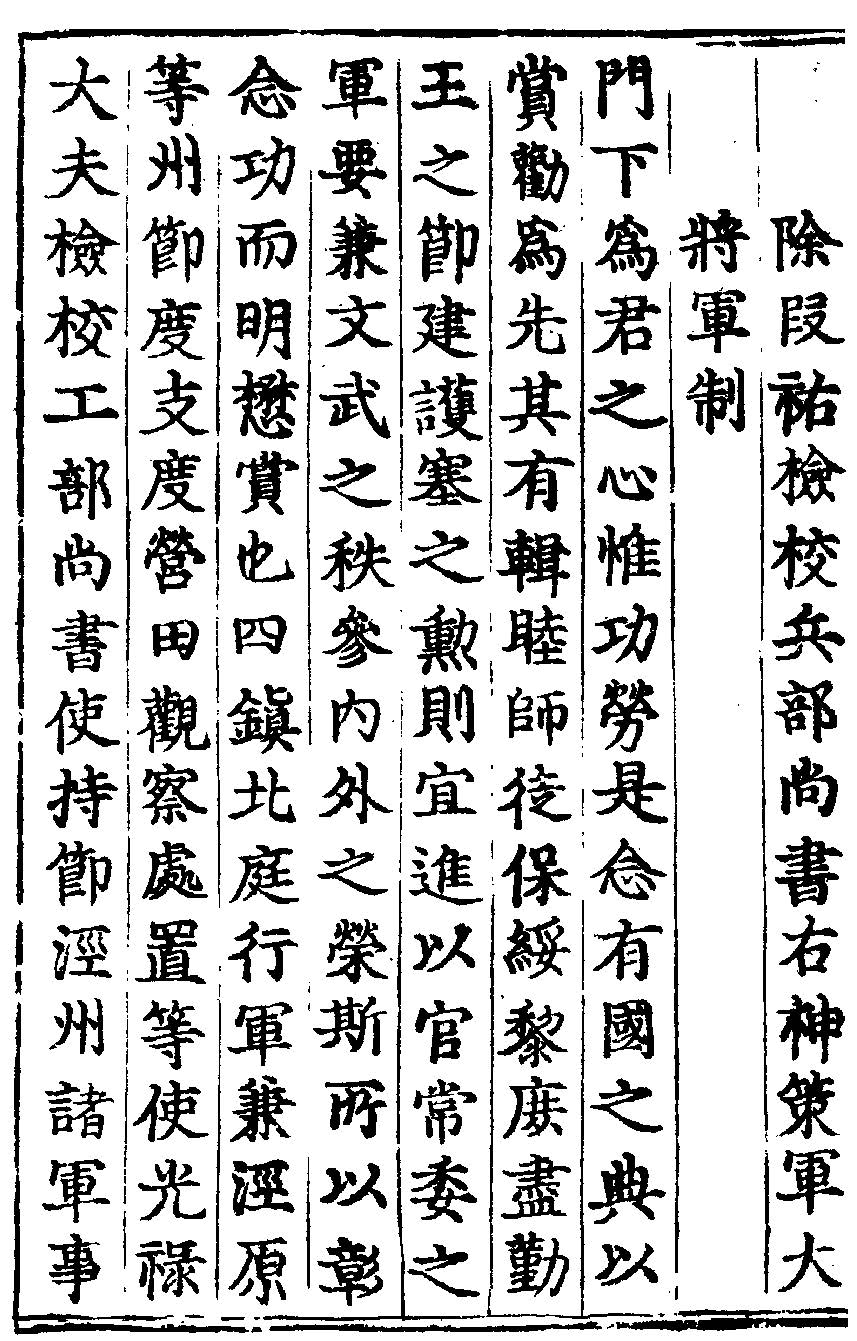 除段祐檢校兵部尚書右神策軍大
將軍制
門下爲君之心惟功勞是念有國之典以
賞勸爲先其有輯睦師徒保綏黎庶盡勤
王之節建護塞之勲則宜進以官常委之
軍要兼文武之秩參内外之榮斯所以彰
念功而明懋賞也四鎮北庭行軍兼涇原
等州節度支度營田觀察處置等使光祿
大夫檢校工部尚書使持節涇州諸軍事